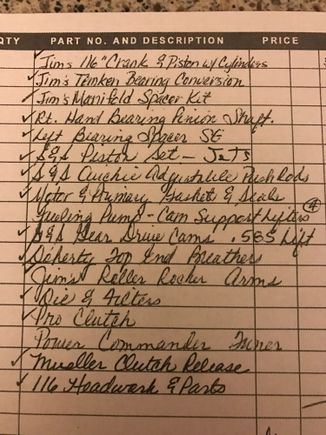 QTY PART NO. AND DESCRIPTION PRICE
✓ Jim's 116" Crank & Piston w/ Cylinders
✓ Jim's Timken Bearing Conversion
✓ Jim's Manifold Spacer Kit
✓ Rt. Hand Bearing Pinion Shaft.
✓ Left Bearing Spacer SE
✓ S&S Piston Set - Jets
✓ S&S Quickie Adjustable Pushrods
✓ Motor & Primary Gasket & Seals
Fueling Pump - Cam Support Lifters ④
✓ S&S Gear Drive Cams .585 Lift
✓ Doherty Top End Breathers
Jim's Roller Rocker Arms
✓ & Filters
✓ Pro Clutch
Power Commander Tuner
✓ Mueller Clutch Release
✓ 116 Headwork & Parts